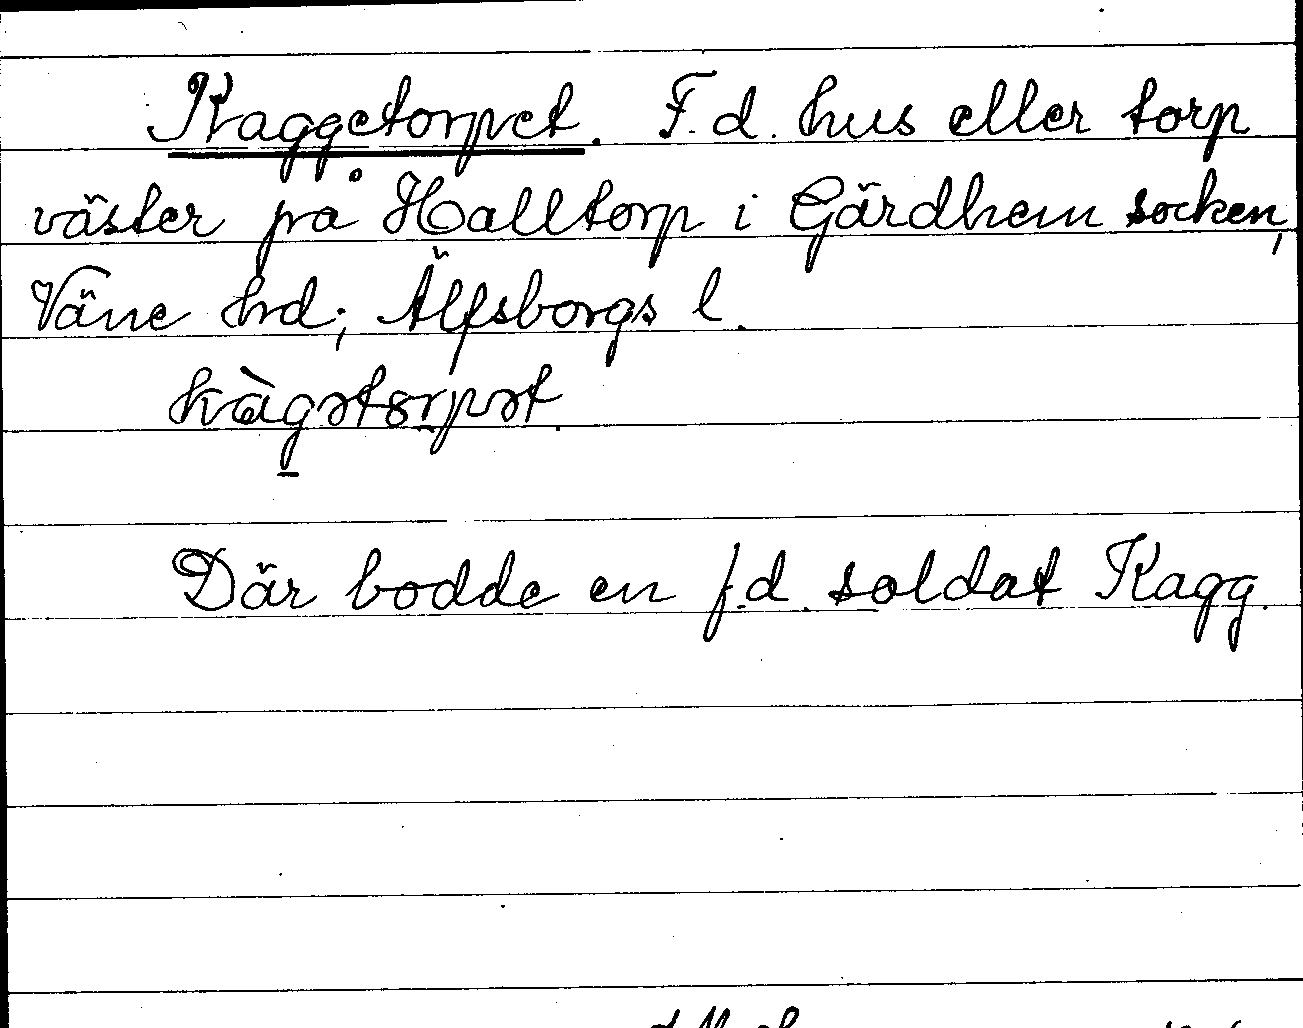 Kaggetorpet. F.d. hus eller torp
väster på Halltorp i Gärdhem socken,
Väne hrd; Älfsborgs l.
kàgətorpət.
Där bodde en f.d. soldat Kagg.